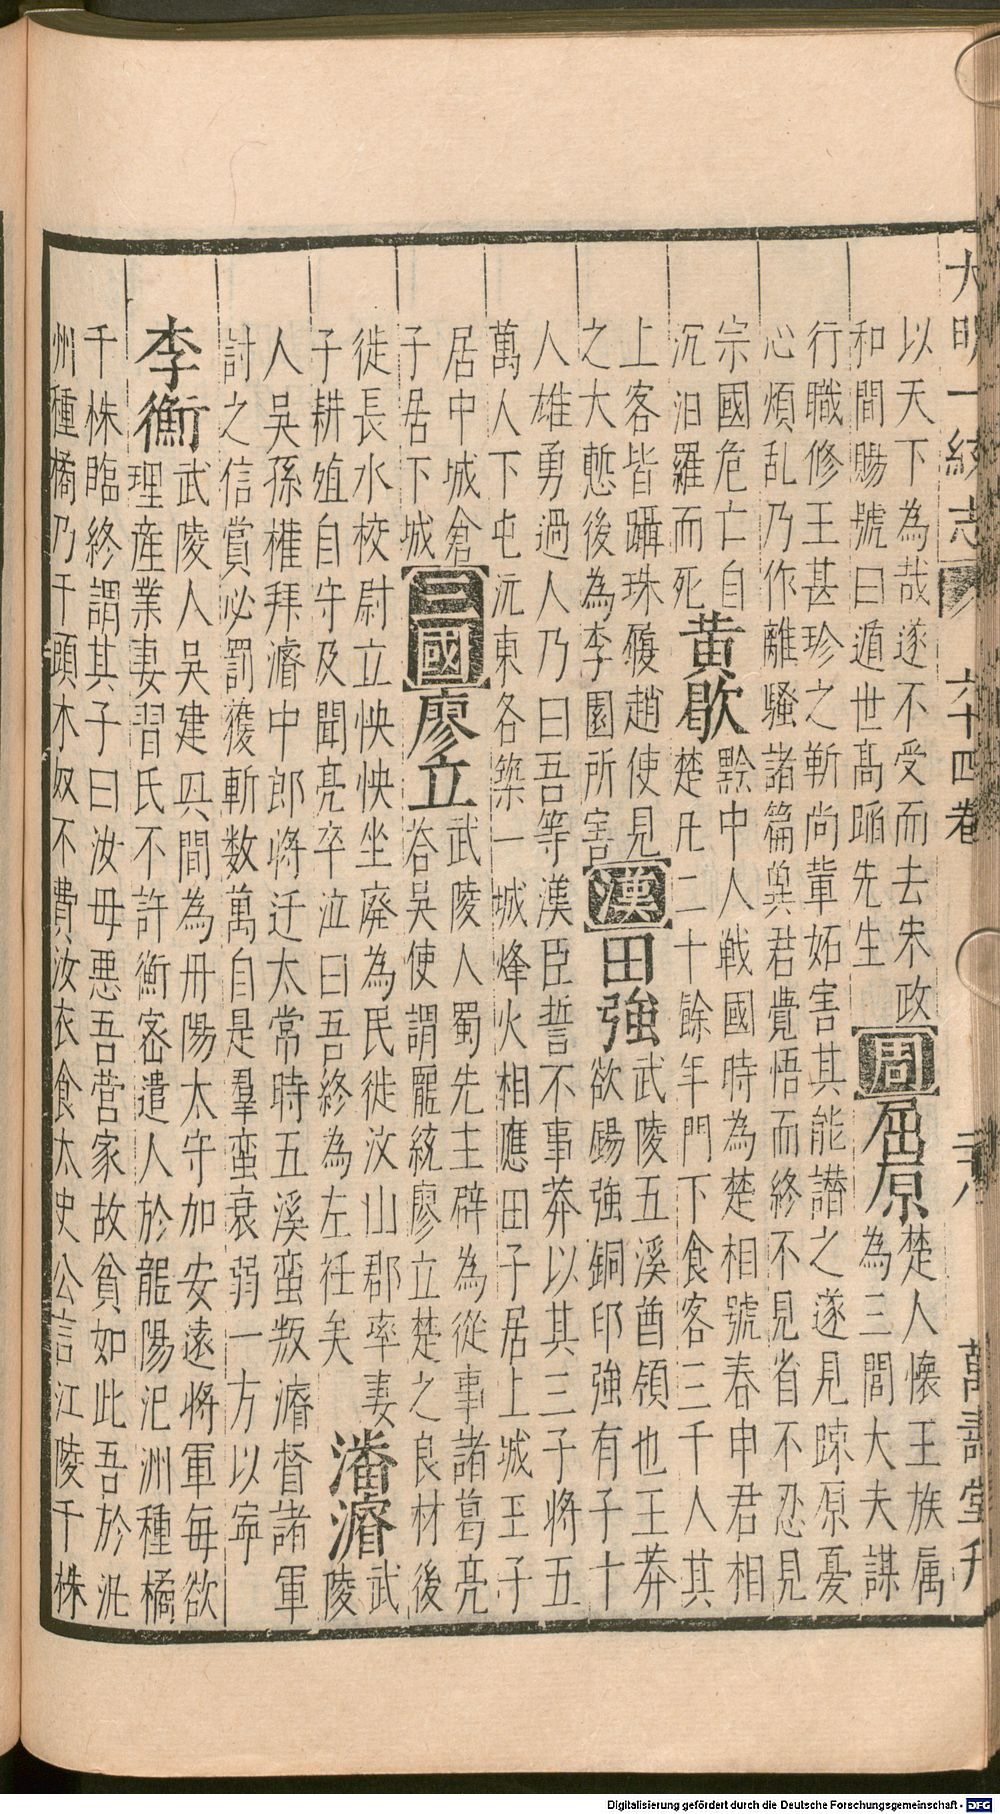 大明一統志 六十四卷 萬壽堂刊
以天下為哉遂不受而去朱政
和間賜號曰遁世高蹈先生
周 屈原
楚人懷王族属
為三閭大夫謀
行職修王甚珍之靳尚軰妬害其能譖之遂見踈原憂
心煩乱乃作離騷諸篇兾君覺悟而終不見省不忍見
宗國危亡自
沉汨羅而死
黄歇
黔中人戦國時為楚相號春申君相
楚凡二十餘年門下食客三千人其
上客皆躡珠履趙使見
之大慙後為李園所害
漢 田強
武陵五溪酋領也王莽
欲鍚強銅印強有子十
人雄勇過人乃曰吾等漢臣誓不事莽以其三子将五
萬人下屯沅東各築一城烽火相應田子居上城王子
居中城倉
子居下城
三國 廖立
武陵人蜀先主辟為從事諸葛亮
荅吳使謂龎統廖立楚之良材後
徙長水校尉立怏怏坐廢為民徙汶山郡率妻
子耕殖自守及聞亮卒泣曰吾終為左衽矣
潘濬
武
陵
人吳孫權拜濬中郎将迁太常時五溪蛮叛濬督諸軍
討之信賞必罰獲斬数萬自是羣蛮衰弱一方以寧
李衡
武陵人吳建興間為丹陽太守加安遠将軍每欲
理産業妻習氏不許衡宻遣人於龍陽汜洲種橘
千株臨終謂其子曰汝毋悪吾營家故貧如此吾於汜
州種橘乃千頭木奴不費汝衣食太史公言江陵千株
Digitalisierung gefördert durch die Deutsche Forschungsgemeinschaft - DFG